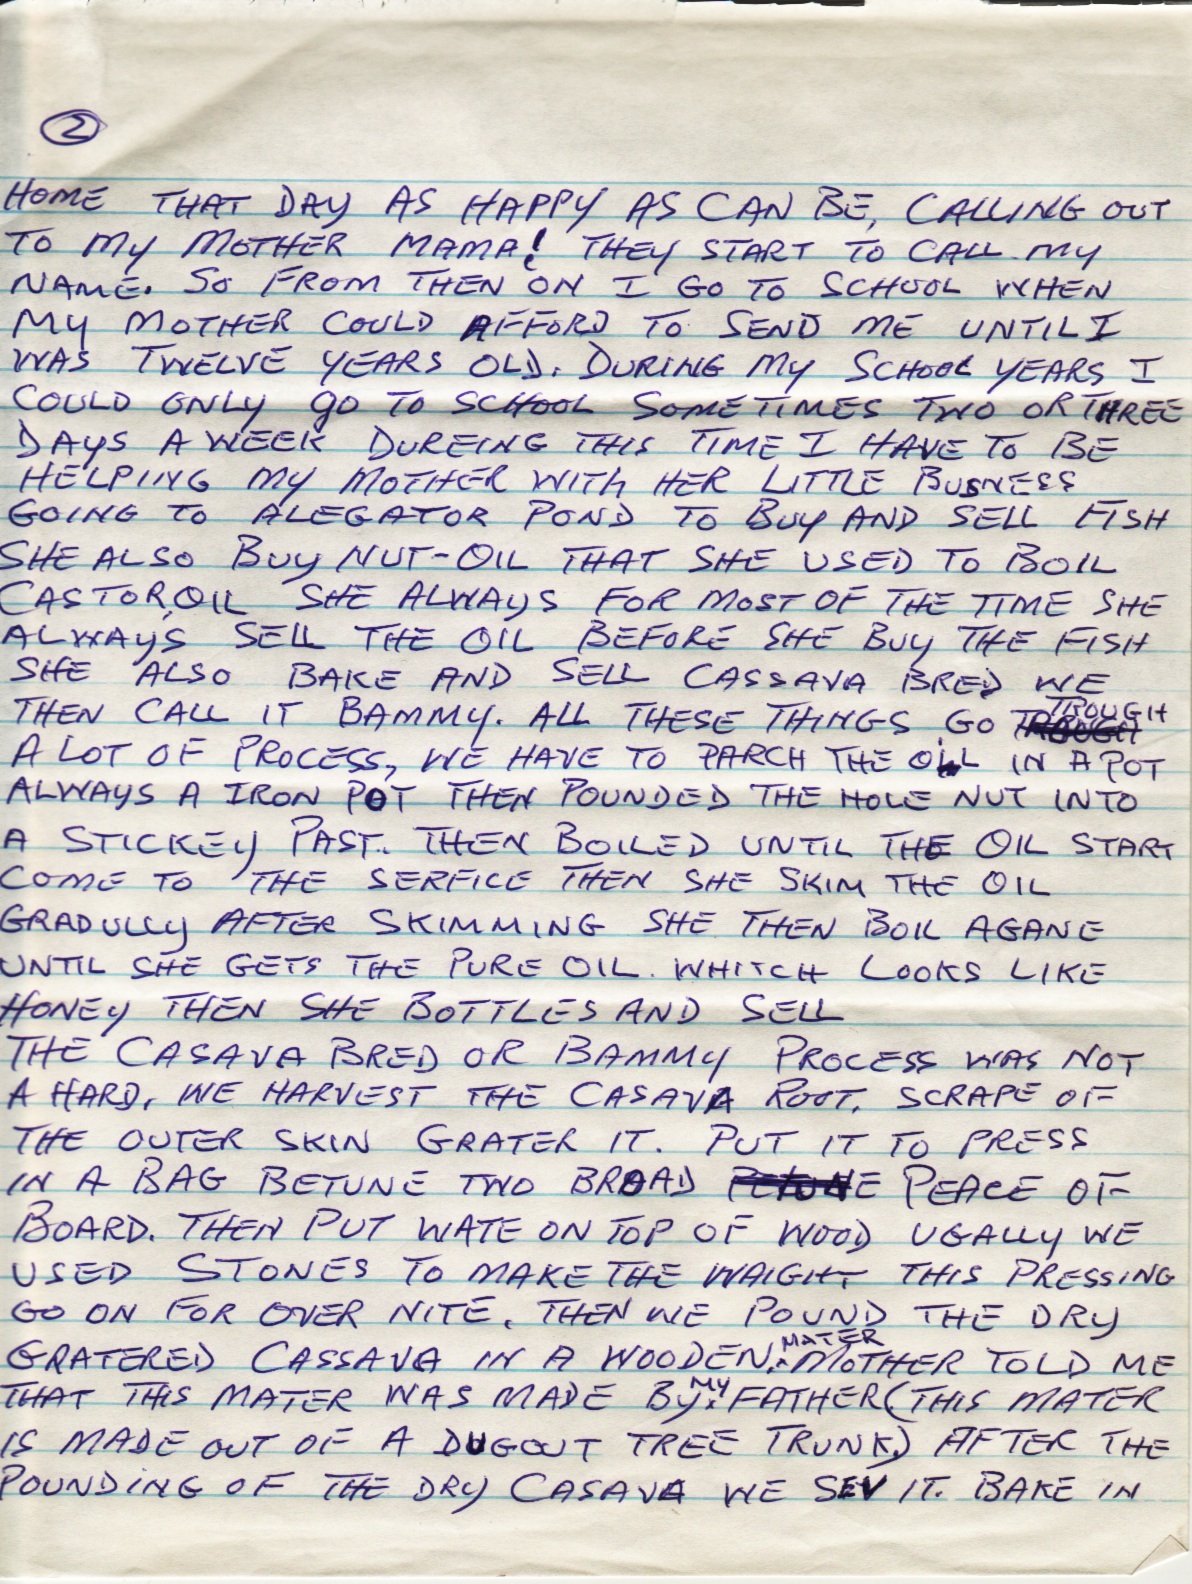 2
HOME THAT DAY AS HAPPY AS CAN BE, CALLING OUT
TO MY MOTHER MAMA! THEY START TO CALL MY
NAME. SO FROM THEN ON I GO TO SCHOOL WHEN
MY MOTHER COULD AFFORD TO SEND ME UNTIL I
WAS TWELVE YEARS OLD. DURING MY SCHOOL YEARS I
COULD ONLY go TO SCHOOL SOMETIMES TWO OR THREE
DAYS A WEEK DUREING THIS TIME I HAVE TO BE
HELPING MY MOTHER WITH HER LITTLE BUSNESS
GOING TO ALEGATOR POND TO BUY AND SELL FISH
SHE ALSO BUY NUT-OIL THAT SHE USED TO BOIL
CASTOR,OIL SHE ALWAYS FOR MOST OF THE TIME SHE
ALWAYS SELL THE OIL BEFORE SHE BUY THE FISH
SHE ALSO BAKE AND SELL CASSAVA BRED WE
THEN CALL IT BAMMY. ALL THESE THINGS GO TROUGH
A LOT OF PROCESS, WE HAVE TO PARCH THE OIL IN A POT
ALWAYS A IRON POT THEN POUNDED THE HOLE NUT INTO
A STICKEY PAST. THEN BOILED UNTIL THE OIL START
COME TO THE SERFICE THEN SHE SKIM THE OIL
GRADULLY AFTER SKIMMING SHE THEN BOIL AGANE
UNTIL SHE GETS THE PURE OIL. WHITCH LOOKS LIKE
HONEY THEN SHE BOTTLES AND SELL
THE CASAVA BRED OR BAMMY PROCESS WAS NOT
A HARD, WE HARVEST THE CASAVA ROOT. SCRAPE OF
THE OUTER SKIN GRATER IT. PUT IT TO PRESS
IN A BAG BETUNE TWO BROAD PEACE OF
BOARD. THEN PUT WATE ON TOP OF WOOD UGALLY WE
USED STONES TO MAKE THE WAIGHT THIS PRESSING
GO ON FOR OVER NITE. THEN WE POUND THE DRY
GRATERED CASSAVA IN A WOODEN. MATER MOTHER TOLD ME
THAT THIS MATER WAS MADE BY MY FATHER (THIS MATER
IS MADE OUT OF A DUGOUT TREE TRUNK) AFTER THE
POUNDING OF THE DRY CASAVA WE SEV IT. BAKE IN